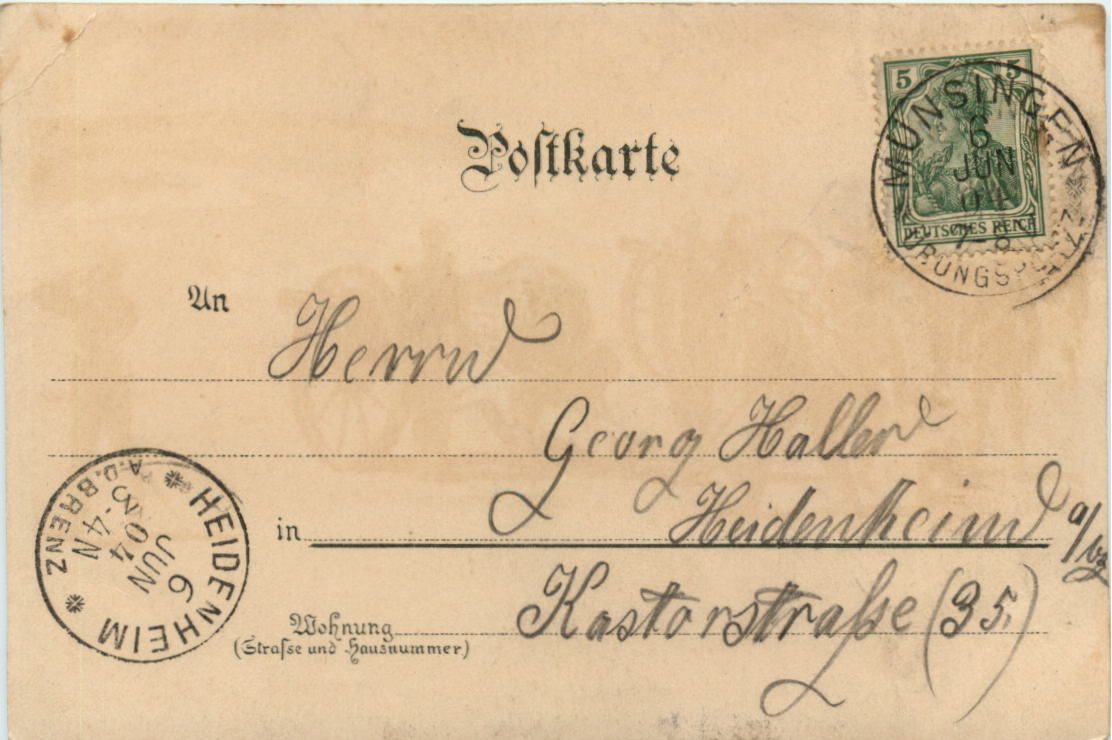 Postkarte
5 5
DEUTSCHES REICH
MÜNSINGEN
6
JUN
04
7-8
An
Herrn
Georg Haller
in Heidenheim a/Bz
Wohnung
(Straſse und Hausnummer)
Kastorstraße (35.)
HEIDENHEIM
6
JUN
04
3-4 N
A.D.BRENZ